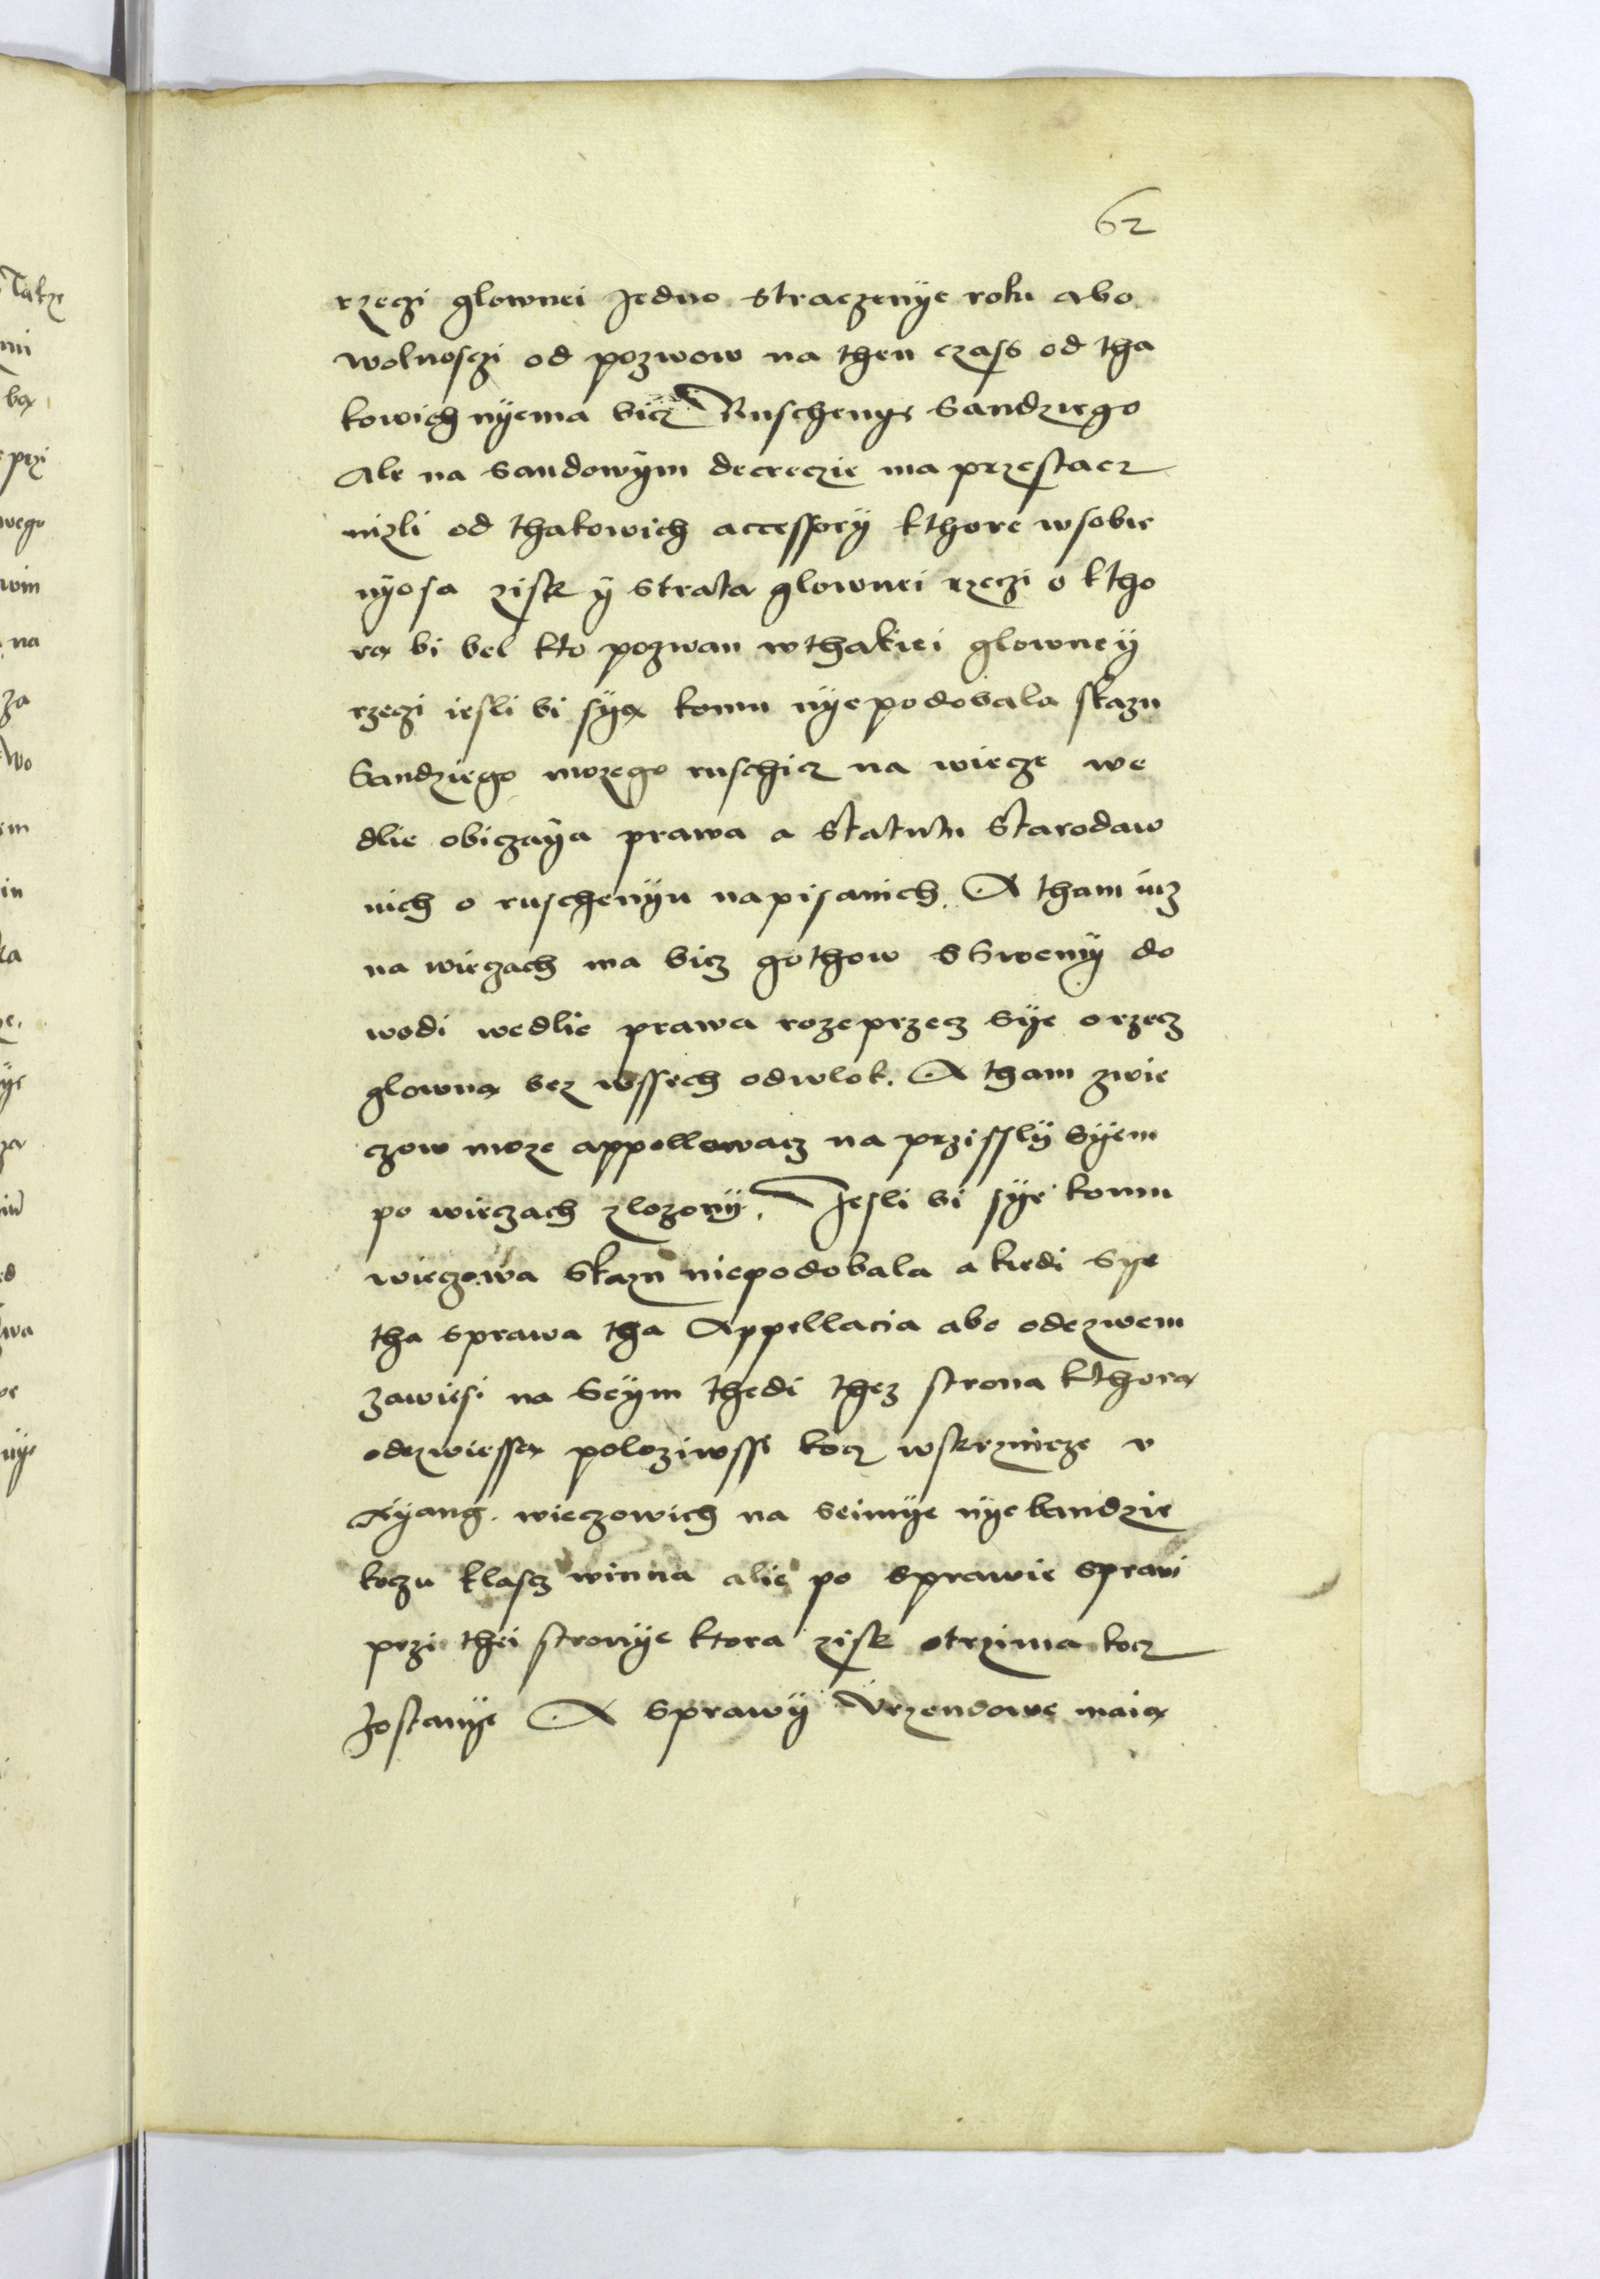 62
rzeczi glownei Jedno straczenÿe roku abo
wolnosczi od pozwow na then czass od tha
kowich nÿema bicz Ruschenÿe Sandziego
Ale na sandowÿm decreczie ma przestacz
nizli od thakowich accessorÿ kthore wsobie
nÿosa zisk ÿ strata glownei rzeczi o ktho
rą bi bel kto pozwan w thakiei glowneÿ
rzeczi iesli bi sÿą komu nÿepodobala skazn
Sandziego mozego ruschicz na wiecze we
dlie obiczaÿa prawa a statutu starodaw
nich o ruschenÿu napisanich. A tham iuz
na wieczach ma bicz gothow s Swemÿ do
wodi wedlie prawa rozeprzecz sÿe o rzecz
glowną bez wssech odwlok. A tham zwie
czow moze appellowacz na przisslÿ sÿem
po wieczach zlozonÿ. Jesli bi sÿe komu
wieczowa skazn niepodobala a kiedi sÿe
tha sprawa tha Appellacia abo odezwem
zawiesi na seÿm thedi thez strona kthora
odezwiessą poloziwssi kocz wskrzincze v
xÿang. wieczowich na seimÿe nÿe bandzie
koczu klascz winna alie po sprawie sprawi
przi thei stronÿe ktora zisk otrzima kocz
zostanÿe A sprawÿ Vrzendowe maią
Takze
mi
bą
przi
wego
win
na
za
wo
em
in
ka
ÿe
za
ed
wa
nÿe